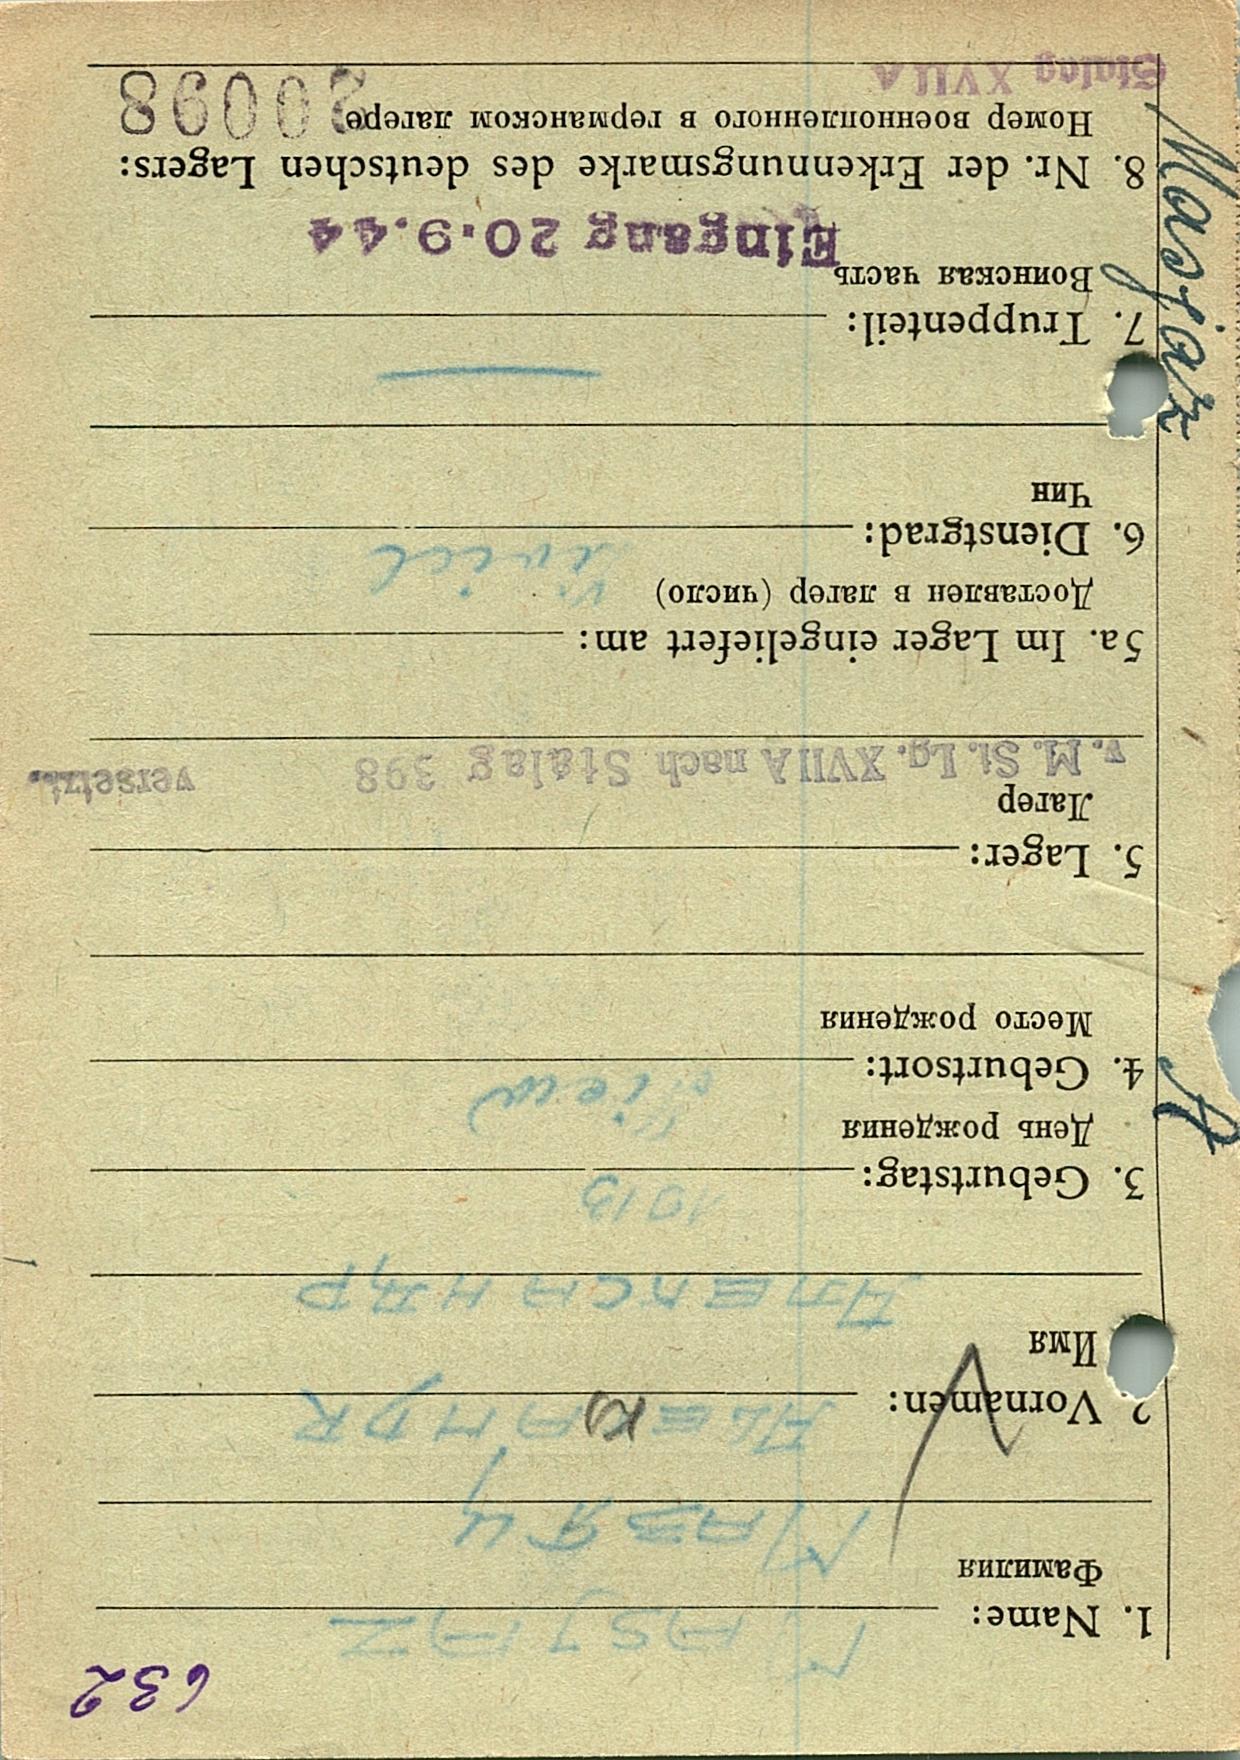 632
1. Name: MASJAZ
Фамилия
МАЗЯЦ
2. Vornamen: ALEXANDR
Имя
АЛЕКСАНДР
3. Geburtstag: 1913
День рождения
4. Geburtsort: Kiew
Место рождения
5. Lager:
Лагер
v. M. St. Lg. XVII A nach Stalag 398 versetzt.
5a. Im Lager eingeliefert am:
Доставлен в лагер (число)
6. Dienstgrad: Zivil
Чин
7. Truppenteil:
Воинская часть
Eingang 20.9.44
8. Nr. der Erkennungsmarke des deutschen Lagers:
Номер военнопленного в германском лагере 20098
Stalag XVII A
Masjaz
A